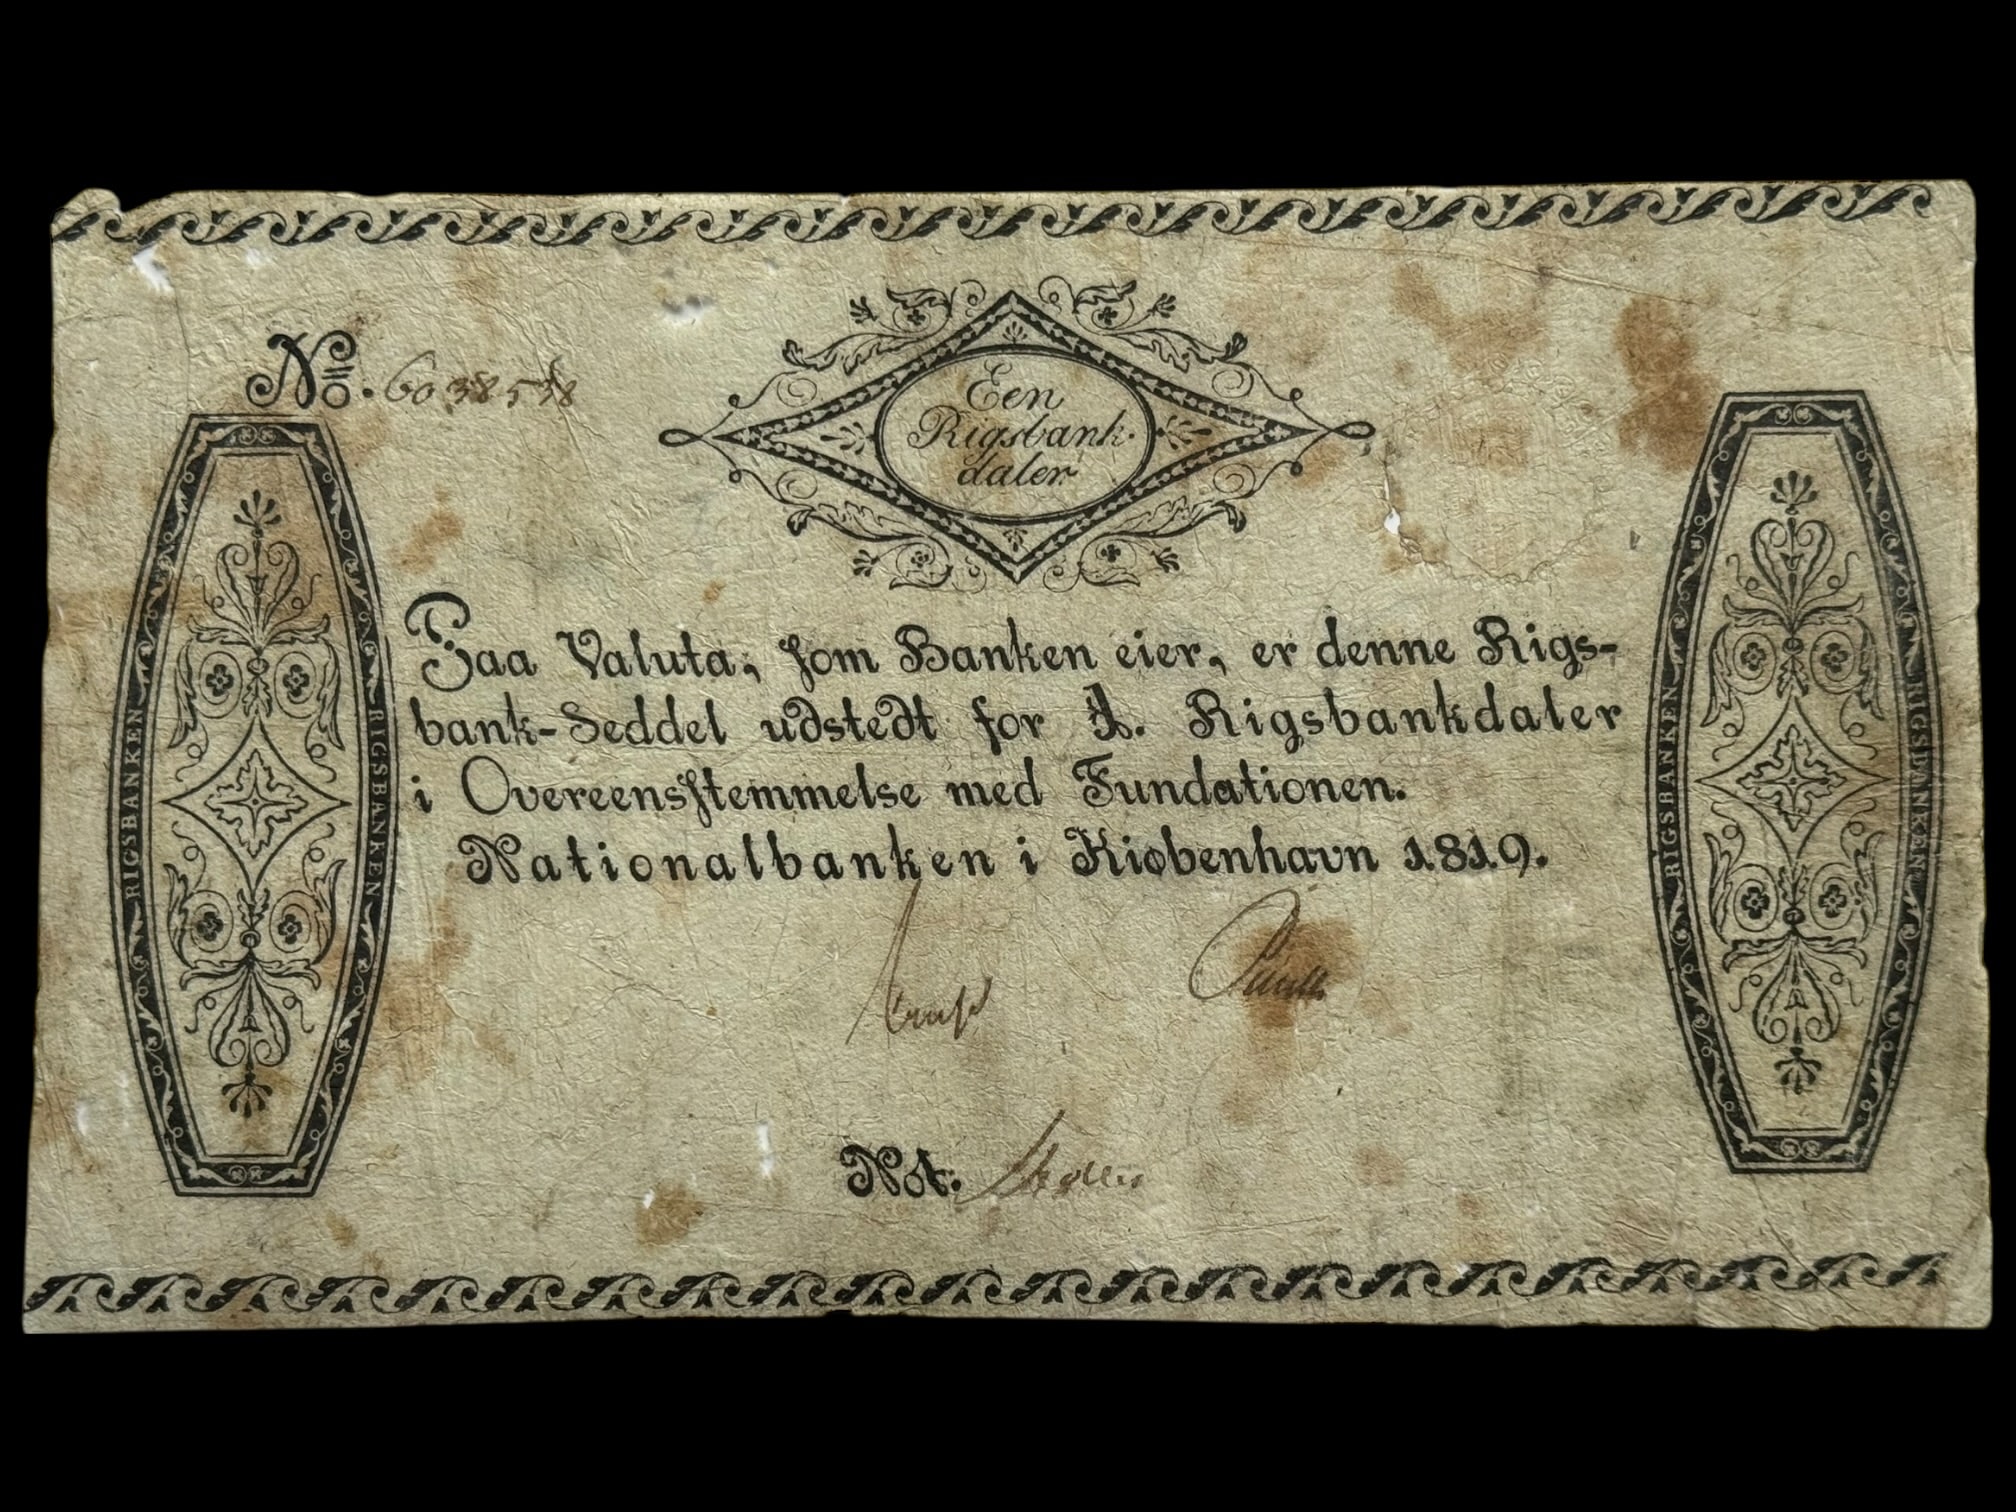 No. 6038538
Een
Rigsbank-
daler
Paa Valuta, som Banken eier, er denne Rigs-
bank-Seddel udstedt for 1. Rigsbankdaler
i Overeensstemmelse med Fundationen.
Nationalbanken i Kiøbenhavn 1819.
Not.
RIGSBANKEN
RIGSBANKEN
RIGSBANKEN
RIGSBANKEN